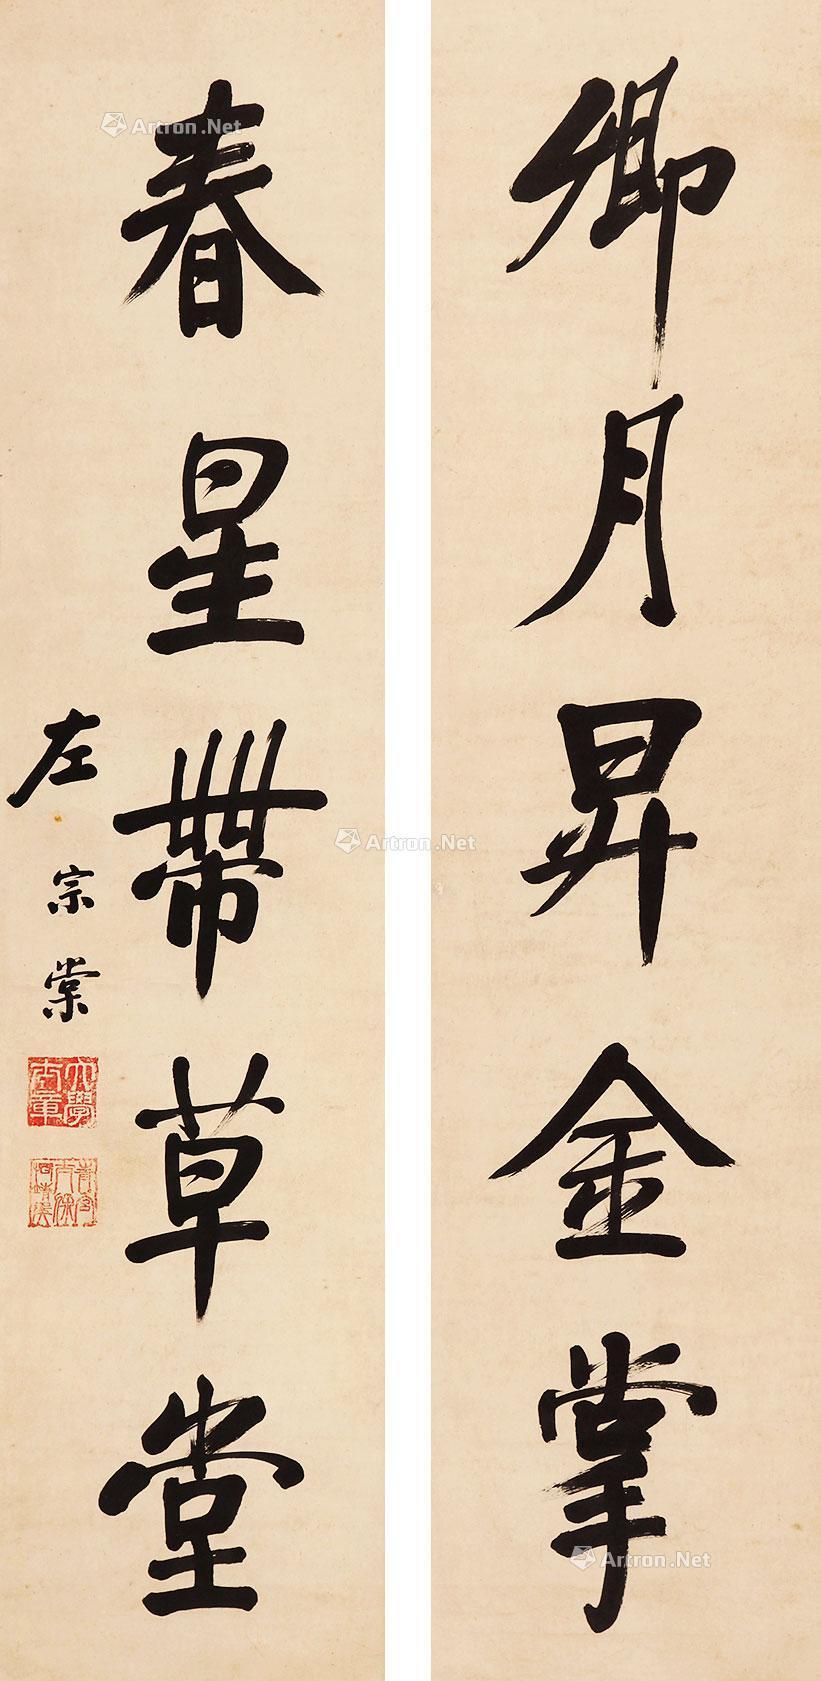 卿月昇金掌
春星帶草堂
左宗棠
大學士章
Artron.Net
Artron.Net
Artron.Net